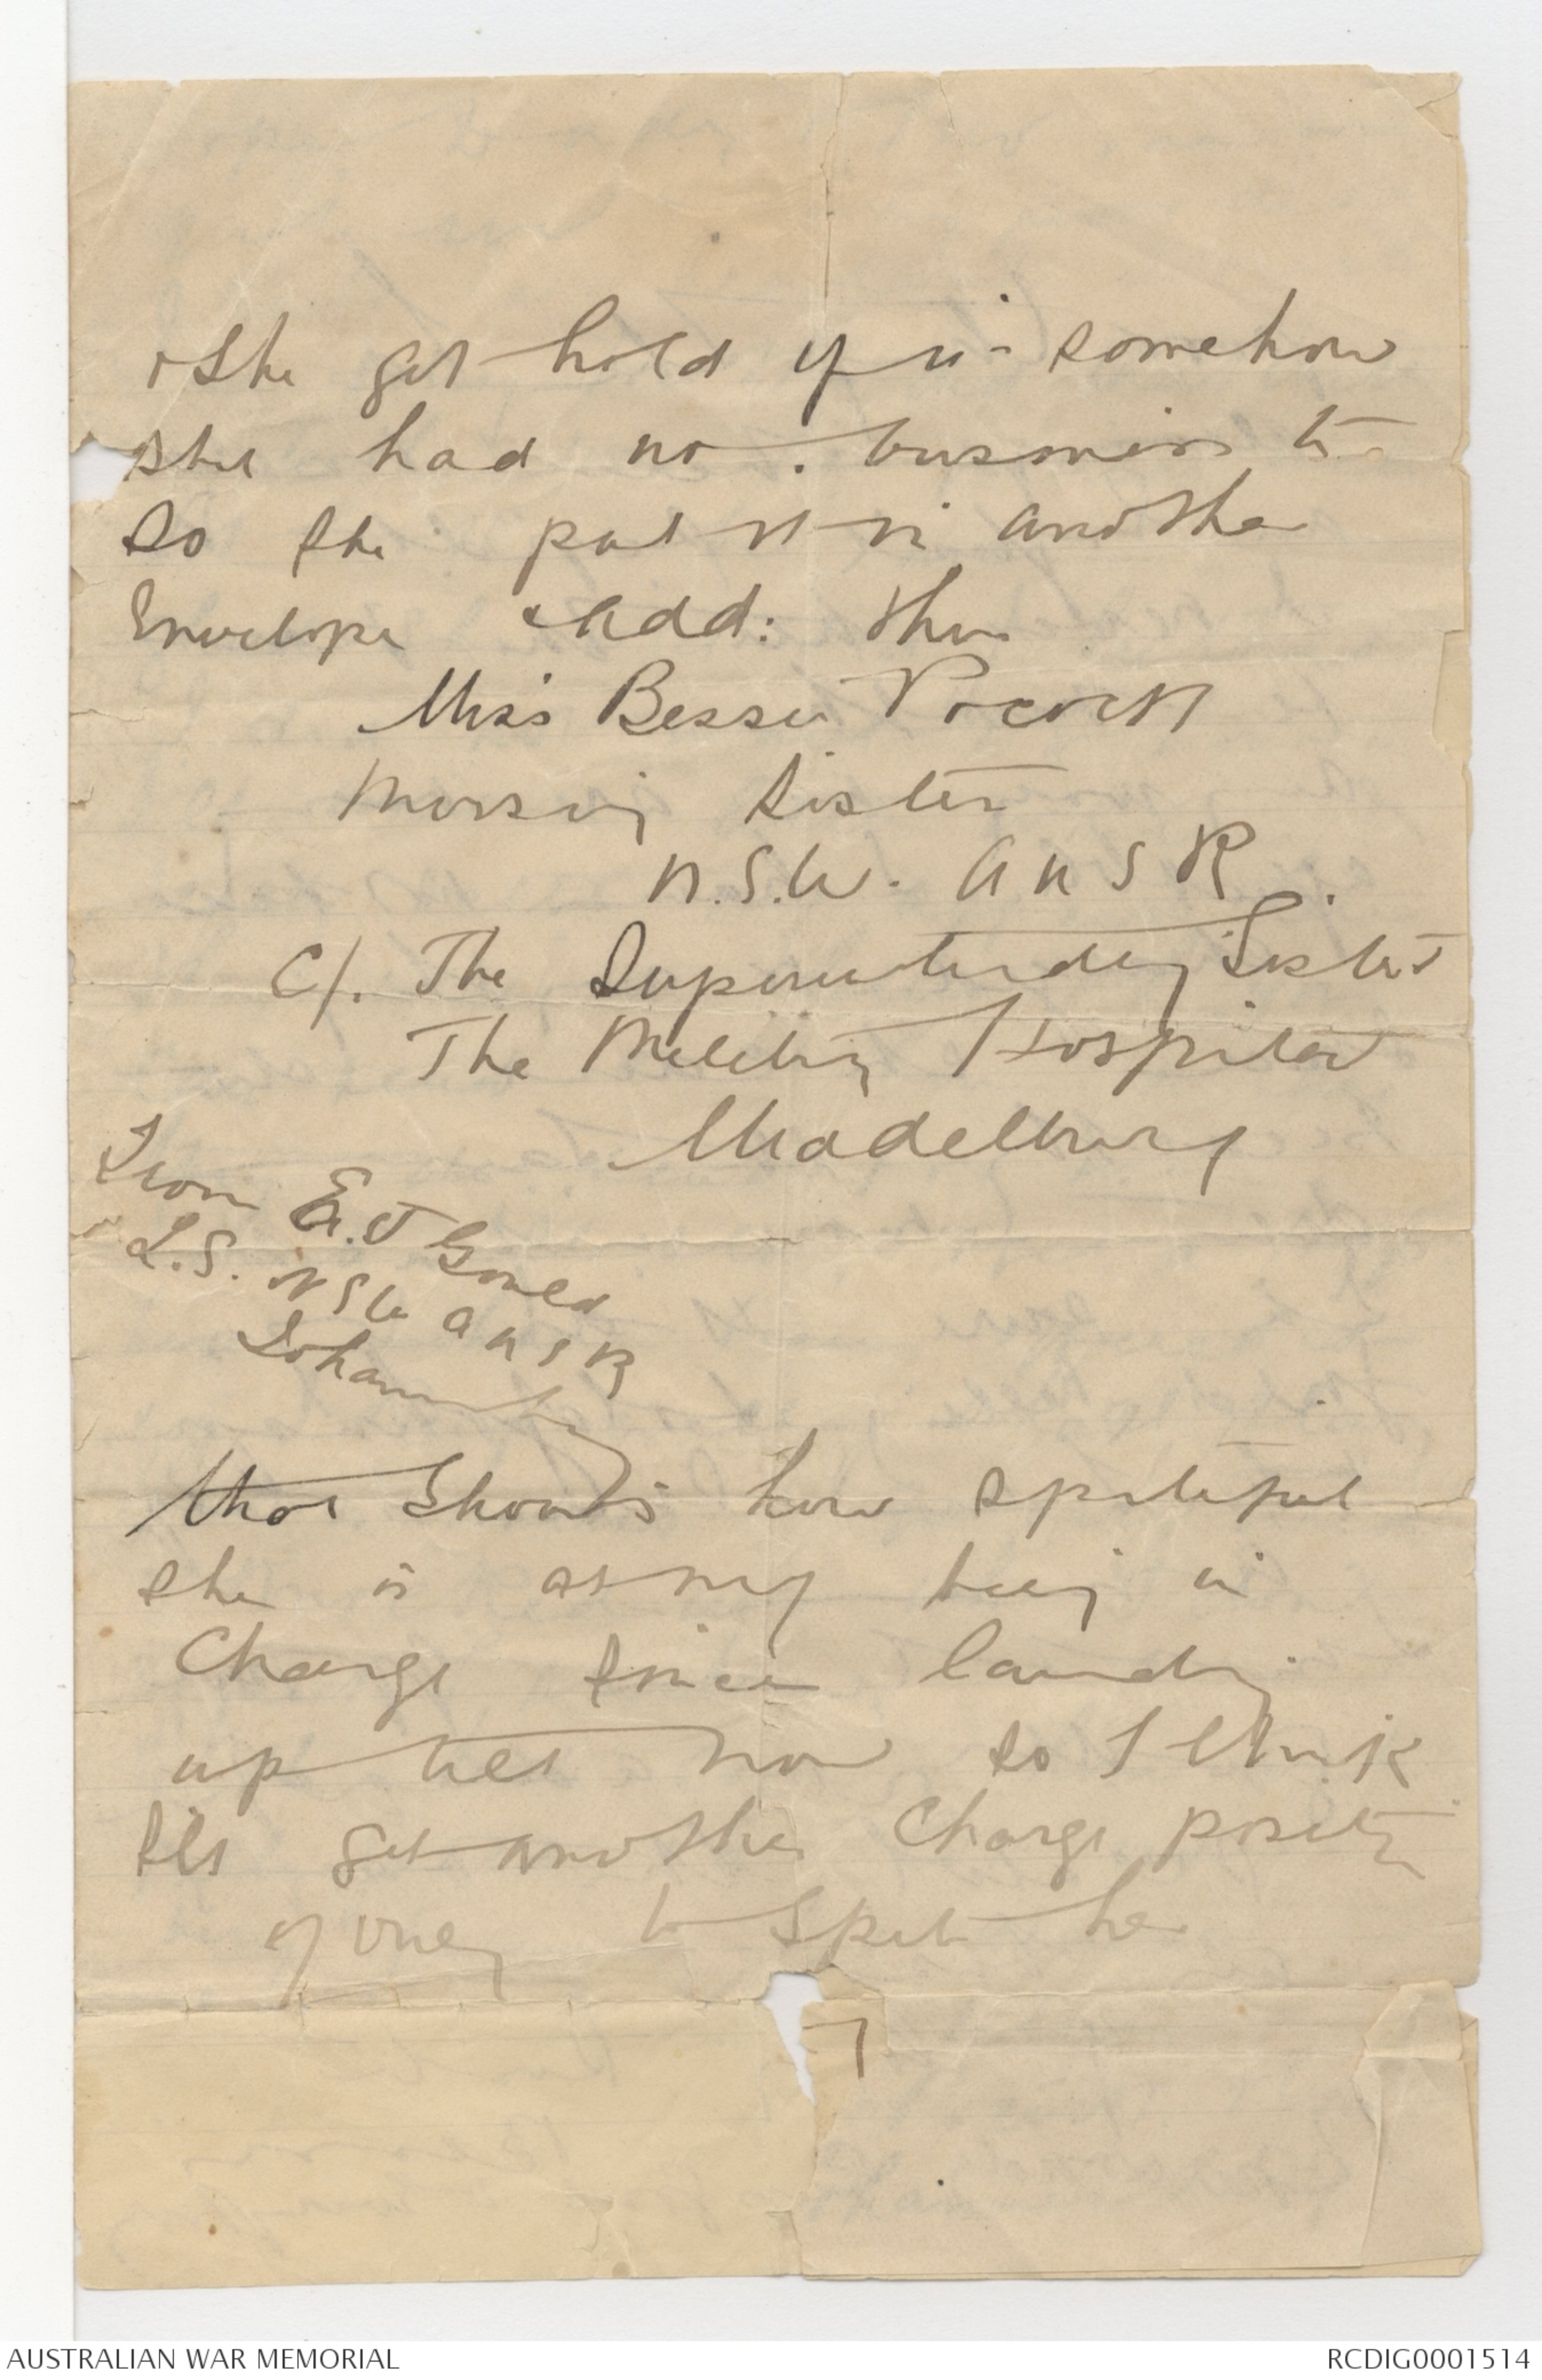 & she got hold of it somehow
she had no business to
So she put it in another
Envelope & Add: thus
Miss Bessie Pocock
Nursing Sister
N.S.W. A N S R.
C/. The Superintending Sister
The Military Hospital
Middelburg
From E. J Gould
L.S. N S W A N S R
Johannesburg
that Shows how spiteful
she is at my being in
Charge since landing
up till now so I think
I'll get another Charge position
if only to Spite her
7
AUSTRALIAN WAR MEMORIAL
RCDIG0001514